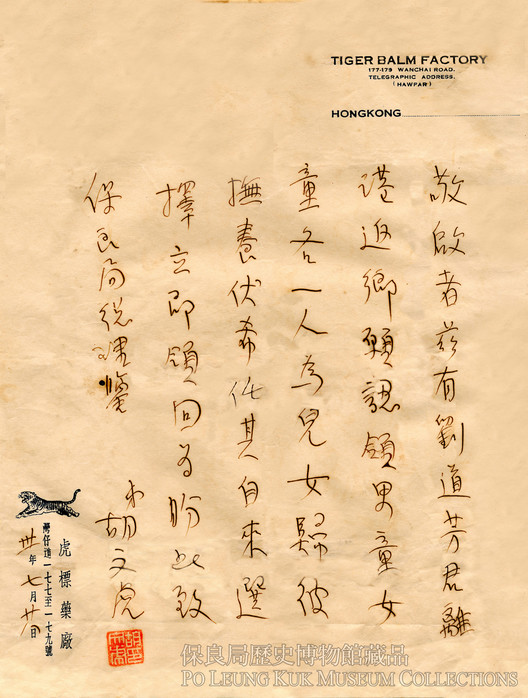 TIGER BALM FACTORY
177-179 WANCHAI ROAD.
TELEGRAPHIC ADDRESS.
(HAWPAR)
HONGKONG
敬啟者茲有劉道芳君離
港返鄉願認領男童女
童各一人為兒女歸彼
撫養伏希任其自來選
擇立即領回為盼此致
保良局總理鑒
弟胡文虎
虎標藥廠
灣仔道一七七至一七九號
卅年七月廿日
保良局歷史博物館藏品
PO LEUNG KUK MUSEUM COLLECTIONS